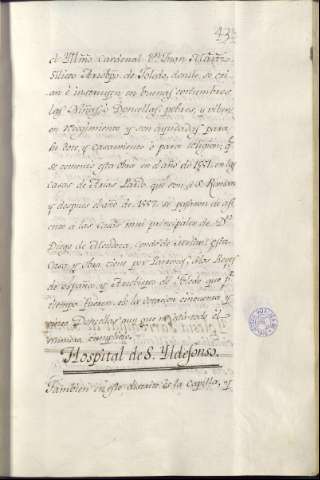 435
el Illmo. Cardenal Dn. Juan Martz.
Siliceo Arzobpo. de Toledo, donde se cri
an è instruyen en buenas costumbres
las Niñas, ò Doncellas pobres, y viben
en recogimiento y son ayudadas para
su dote, y casamiento o para religion; qe
se comenzo esta obra en el año de 1551. en las
casas de Arias Pardo, que son, a S. Roman
y despues el año de 1557. se pasaron de asi
ento a las casas mui principales de Dn.
Diego de Mendoza, Conde de Melito; esta
Casa y obra tiene por Patronos à los Reyes
de españa, y Arzobispo de Toledo que pr.
tiempo fueren, es la dotacion cinquenta y
Doncellas aun que no está todo el
numero completo.
Hospital de S. Yldefonso.
Tambien en este distrito es la Capilla, y